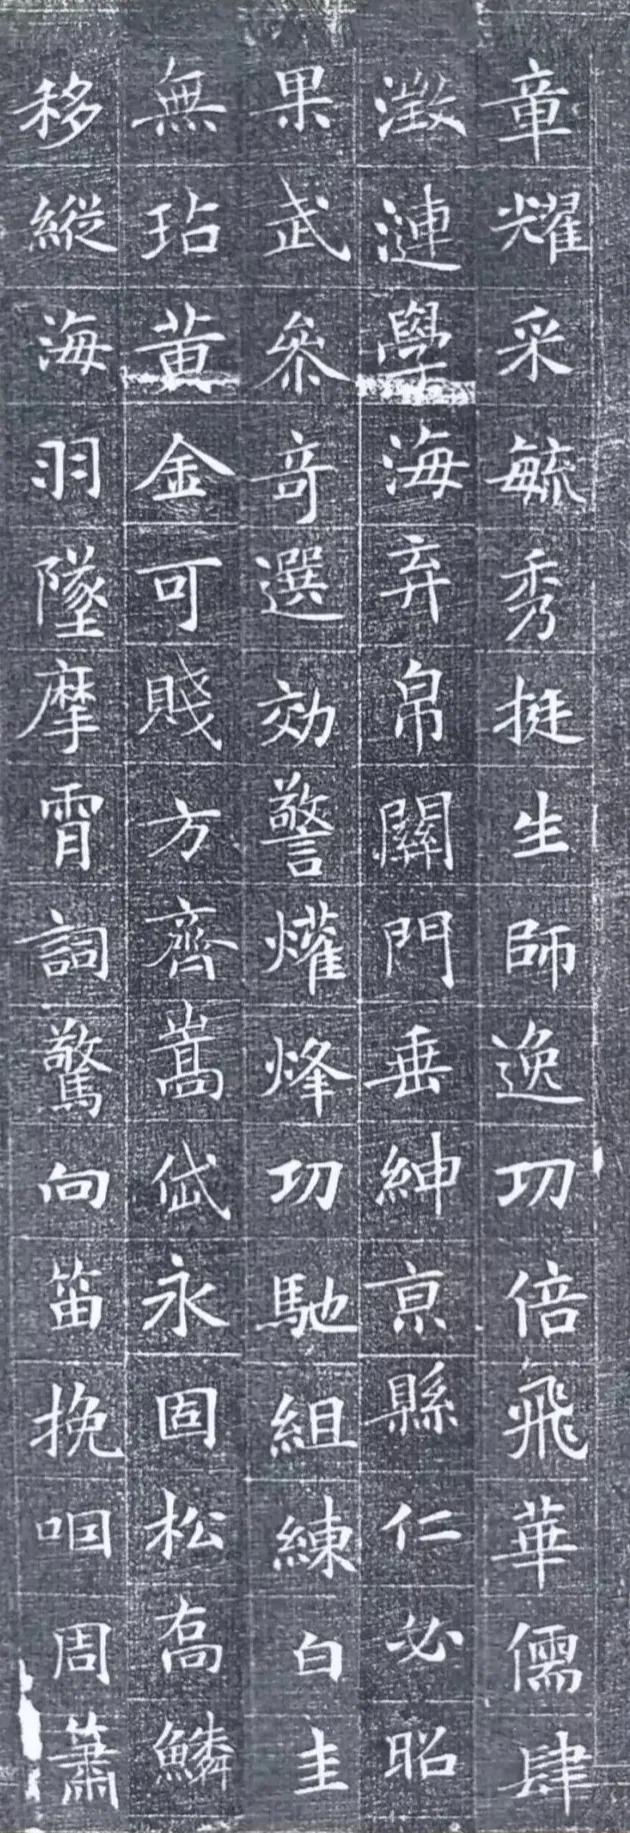 章耀采毓秀挺生師逸功倍飛華儒肆
澂漣學海弃帛關門垂紳京縣仁必昭
果武叅奇選効警爟烽功馳組練白圭
無玷黄金可賤方齊嵩岱永固松高鱗
移縱海羽墜摩霄詞驚向笛挽咽周簫